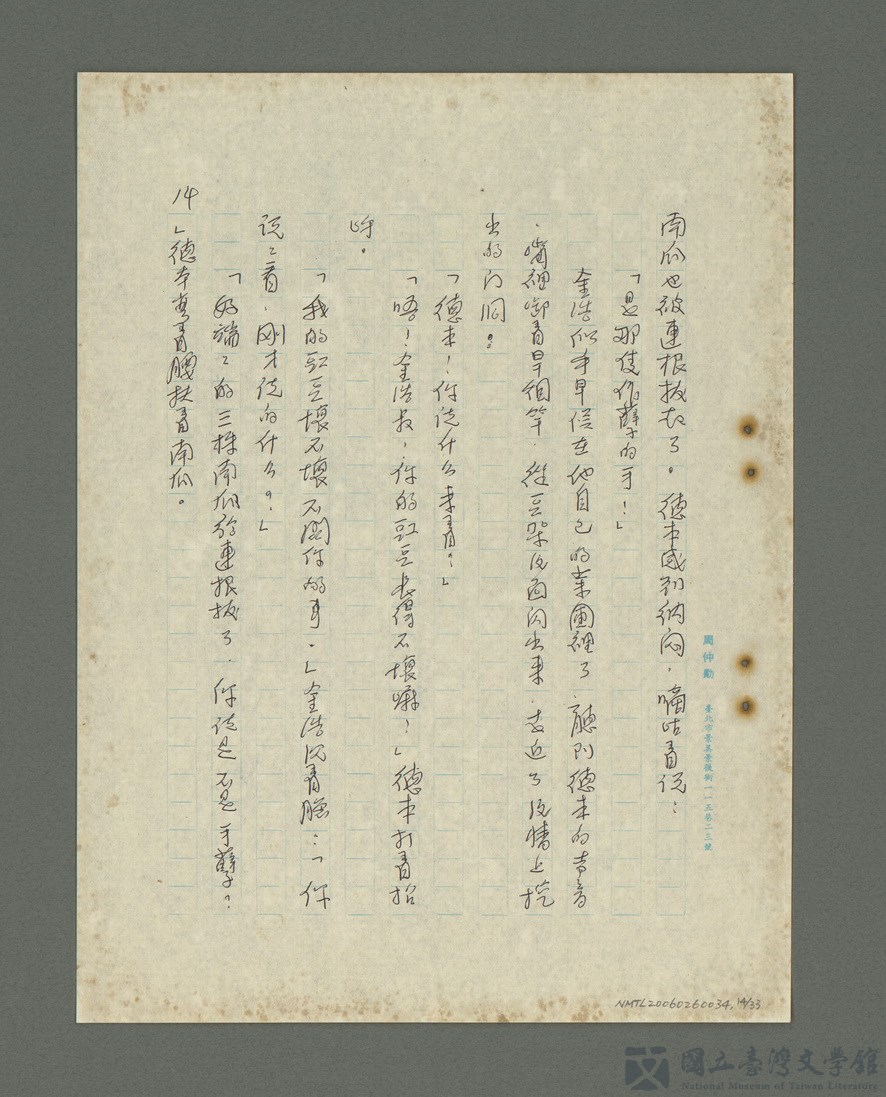 南瓜也被連根拔起了。德本感到納悶，嘀咕着说：
「是那隻作孽的手！」
金浩似乎早信在他自己的菜園裡了，聽到德本的声音
，嘴裡啣着旱烟竿，從豆架後面闪出來，走近了後牆上挖
出的门洞：
「德本！你说什么來着？」
「唔！金浩叔，你的豇豆長得不壞嘛！」德本打着招
呼。
「我的豇豆壞不壞不関你的事，」金浩沉着臉：「你
说說看，刚才说的什么？」
「好端端的三株南瓜給連根拔了，你说是不是手孽？
」德本彎着腰扶着南瓜。
14
周仲勳
臺北市景美景後街一一五巷二三號
NMTL20060260034, 14/33
國立臺灣文學館
National Museum of Taiwan Literature